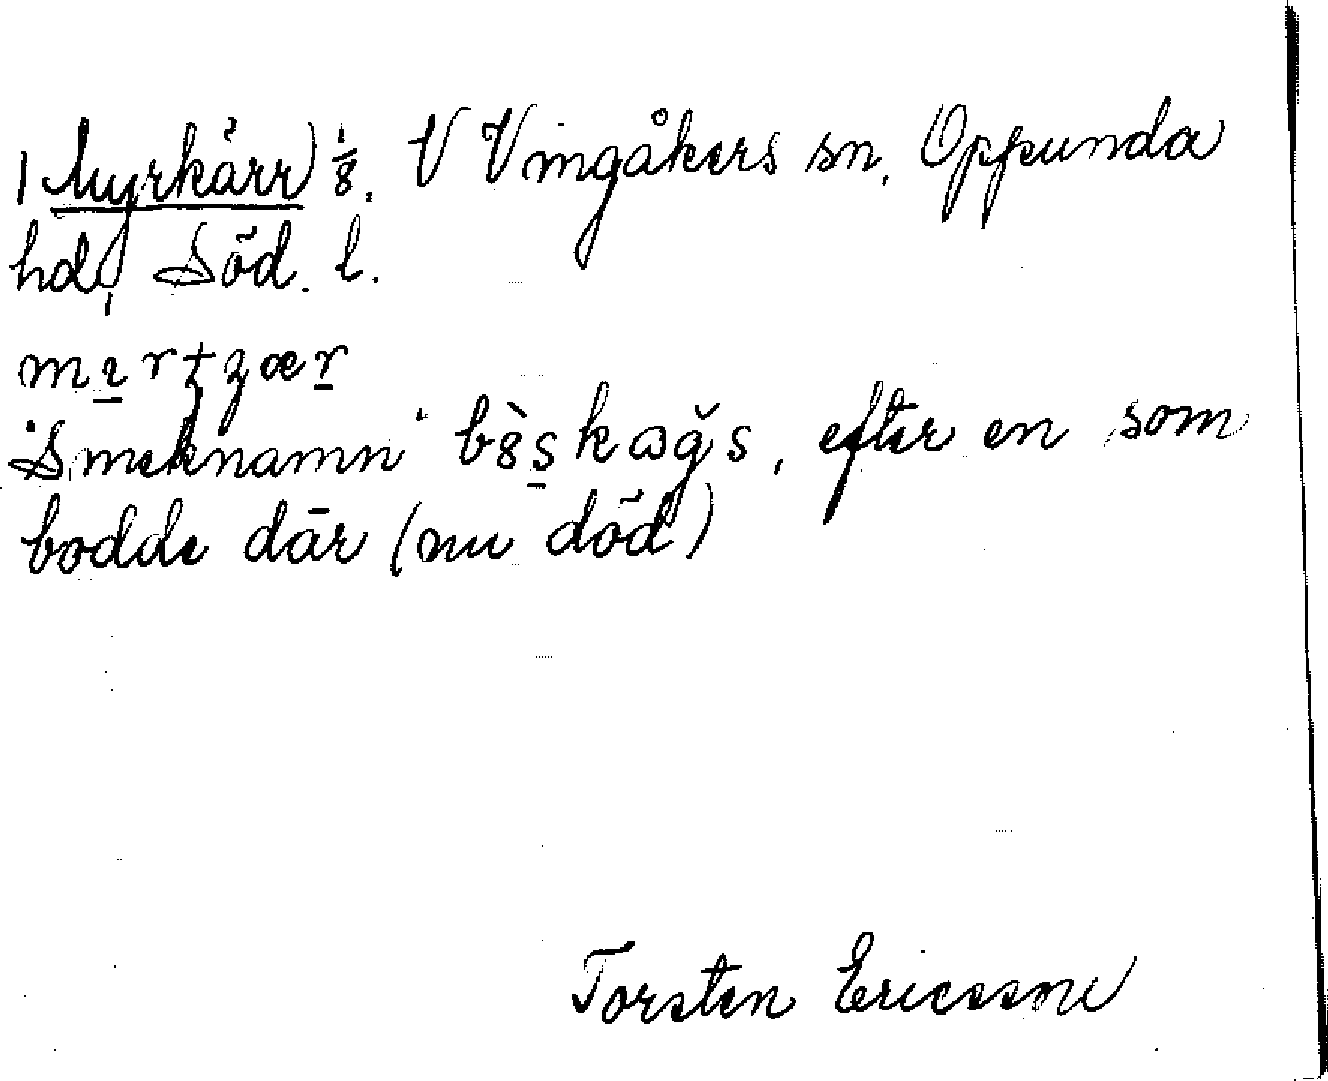 1 Myrkärr 1/8. V Vingåkers sn, Oppunda
hd, Söd. l.
"Smeknamn" , efter en som
bodde där (nu död)
Torsten Ericsson